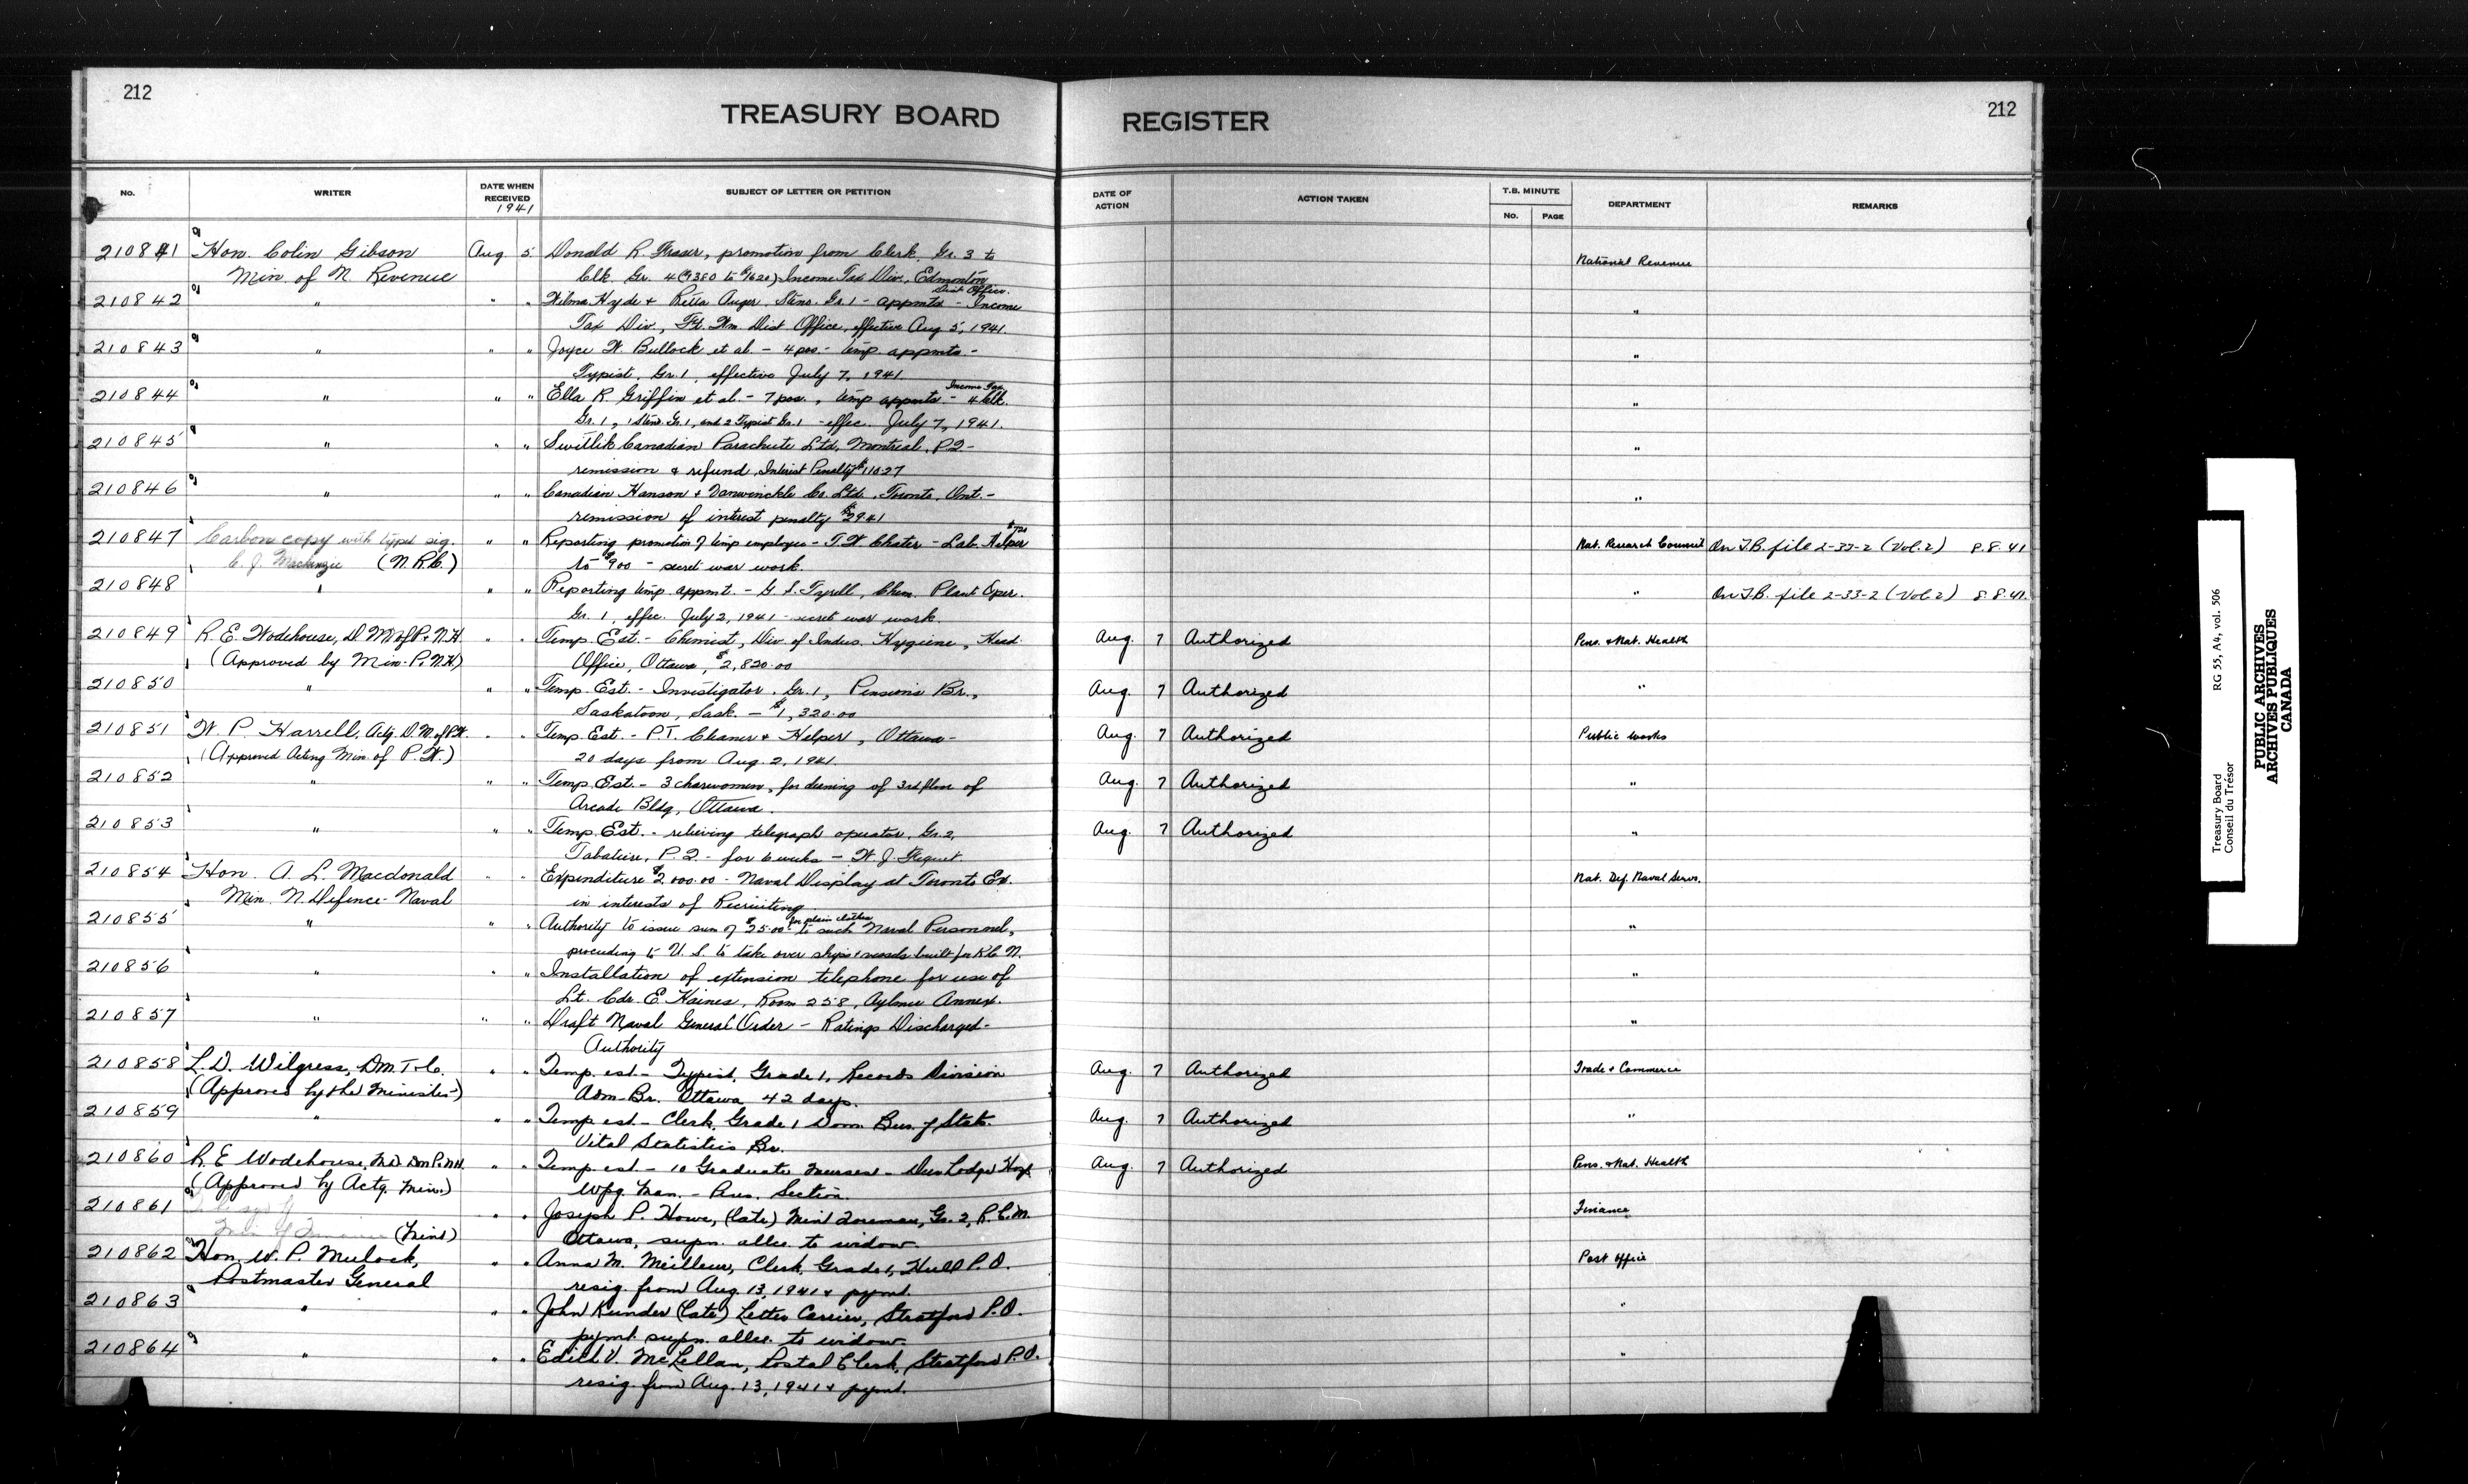 212
TREASURY BOARD REGISTER
212
No. WRITER DATE WHEN RECEIVED 1941 SUBJECT OF LETTER OR PETITION DATE OF ACTION ACTION TAKEN T.B. MINUTE No. PAGE DEPARTMENT REMARKS
210841 Hon. Colin Gibson Aug. 5 Donald R. Fraser, promotion from Clerk, Gr. 3 to National Revenue
Min. of N. Revenue Clk. Gr. 4 ($1380 to $1620) Income Tax Div., Edmonton Dist Office.
210842 " " " Wilma Hyde & Retta Auger, Steno. Gr. 1 - appmts - Income "
Tax Div., Ft. Wm. Dist Office, effective Aug 5, 1941.
210843 " " " Joyce W. Bullock et al. - 4 pos. - temp. appmts. - "
Typist, Gr. 1, effective July 7, 1941.
210844 " " " Ella R. Griffin et al. - 7 pos., temp appmts - Income Tax 4 Clk. "
Gr. 1, 1 Steno. Gr. 1, and 2 Typist Gr. 1 - effec. July 7, 1941.
210845 " " " Switlik Canadian Parachute Ltd, Montreal, P.Q. - "
remission & refund, Interest Penalty $110.27
210846 " " " Canadian Hanson & Vanwinckle Co. Ltd., Toronto, Ont. - "
remission of interest penalty $29.41
210847 Carbon copy with typed sig. " " Reporting promotion of temp employee - T. W. Chater - Lab. Helper $720 Nat. Research Council On T.B. file 2-33-2 (Vol. 2) 8.8.41
C. J. Mackenzie (N.R.C.) to $900 - secret war work.
210848 " " " Reporting temp. appmt. - G. S. Tyrell, Chem. Plant Oper. " On T.B. file 2-33-2 (Vol. 2) 8.8.41.
Gr. 1, effec. July 2, 1941 - secret war work.
210849 R. E. Wodehouse, D.M. of P. & N.H. " " Temp. Est. - Chemist, Div. of Indus. Hygiene, Head Aug. 7 Authorized Pens. & Nat. Health
(Approved by Min. P. & N.H.) Office, Ottawa, $2,820.00
210850 " " " Temp. Est. - Investigator, Gr. 1, Pensions Br., Aug. 7 Authorized "
Saskatoon, Sask. - $1,320.00
210851 W. P. Harrell, Actg. D.M. of P.W. " " Temp. Est. - P.T. Cleaner & Helper, Ottawa - Aug. 7 Authorized Public Works
(Approved Acting Min. of P.W.) 20 days from Aug. 2, 1941.
210852 " " " Temp. Est. - 3 charwomen, for cleaning of 3rd floor of Aug. 7 Authorized "
Arcade Bldg, Ottawa.
210853 " " " Temp. Est. - relieving telegraph operator, Gr. 2, Aug. 7 Authorized "
Tabatiere, P.Q. - for 6 weeks - W. J.
210854 Hon. A. L. Macdonald " " Expenditure $2,000.00 - Naval Display at Toronto Ex. Nat. Def. Naval Servs.
Min. N. Defence - Naval in interests of Recruiting
210855 " " " Authority to issue sum of $25.00 for plain clothes to such Naval Personnel, "
proceeding to U.S. to take over ships & vessels built for R.C.N.
210856 " " " Installation of extension telephone for use of "
Lt. Cdr. E. Haines, Room 258, Aylmer Annex.
210857 " " " Draft Naval General Order - Ratings Discharged - "
Authority
210858 L. D. Wilgress, D.M. T & C. " " Temp. est. - Typist, Grade 1, Records Division Aug. 7 Authorized Trade & Commerce
(Approved by the Minister) Adm. Br. Ottawa 42 days.
210859 " " " Temp est. - Clerk, Grade 1 Dom. Bur. of Stats. Aug. 7 Authorized "
Vital Statistics Br.
210860 R. E. Wodehouse, M.D. D.M. P. & N.H. " " Temp. est - 10 Graduate Nurses - Deer Lodge Hosp. Aug. 7 Authorized Pens. & Nat. Health
(Approved by Actg. Min.) Wpg. Man. - Pens. Section.
210861 " " Joseph P. Howe, (late) Mint Foreman, Gr. 2, R.C.M. Finance
Min. of Finance (Mint) Ottawa, supn. allce. to widow.
210862 Hon. W. P. Mulock, " " Anna M. Meilleur, Clerk, Grade 1, Hull P.O. Post Office
Postmaster General resig. from Aug. 13, 1941 & pymt.
210863 " " " John Kunder (late) Letter Carrier, Stratford P.O. "
pymt. supn. allce. to widow.
210864 " " " Edith V. McLellan, Postal Clerk, Stratford P.O. "
resig. from Aug. 13, 1941 & pymt.
Treasury Board RG 55, A4, vol. 506
Conseil du Trésor
PUBLIC ARCHIVES
ARCHIVES PUBLIQUES
CANADA